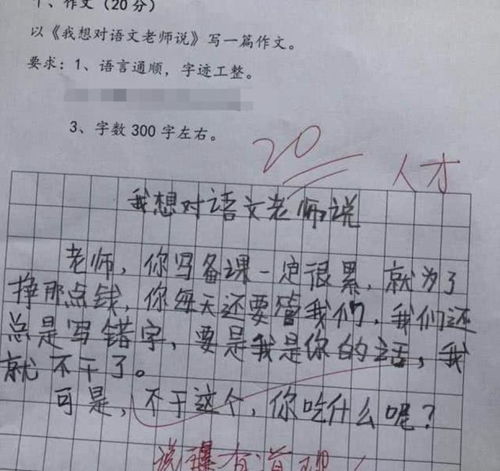 十、作文（20分）
以《我想对语文老师说》写一篇作文。
要求：1、语言通顺，字迹工整。
3、字数300字左右。
20
人才
我想对语文老师说
老师，你写备课一定很累，就为了
挣那点钱，你每天还要管我们，我们还
总是写错字，要是我是你的话，我
就不干了。
可是，不干这个，你吃什么呢？
说
有道理！